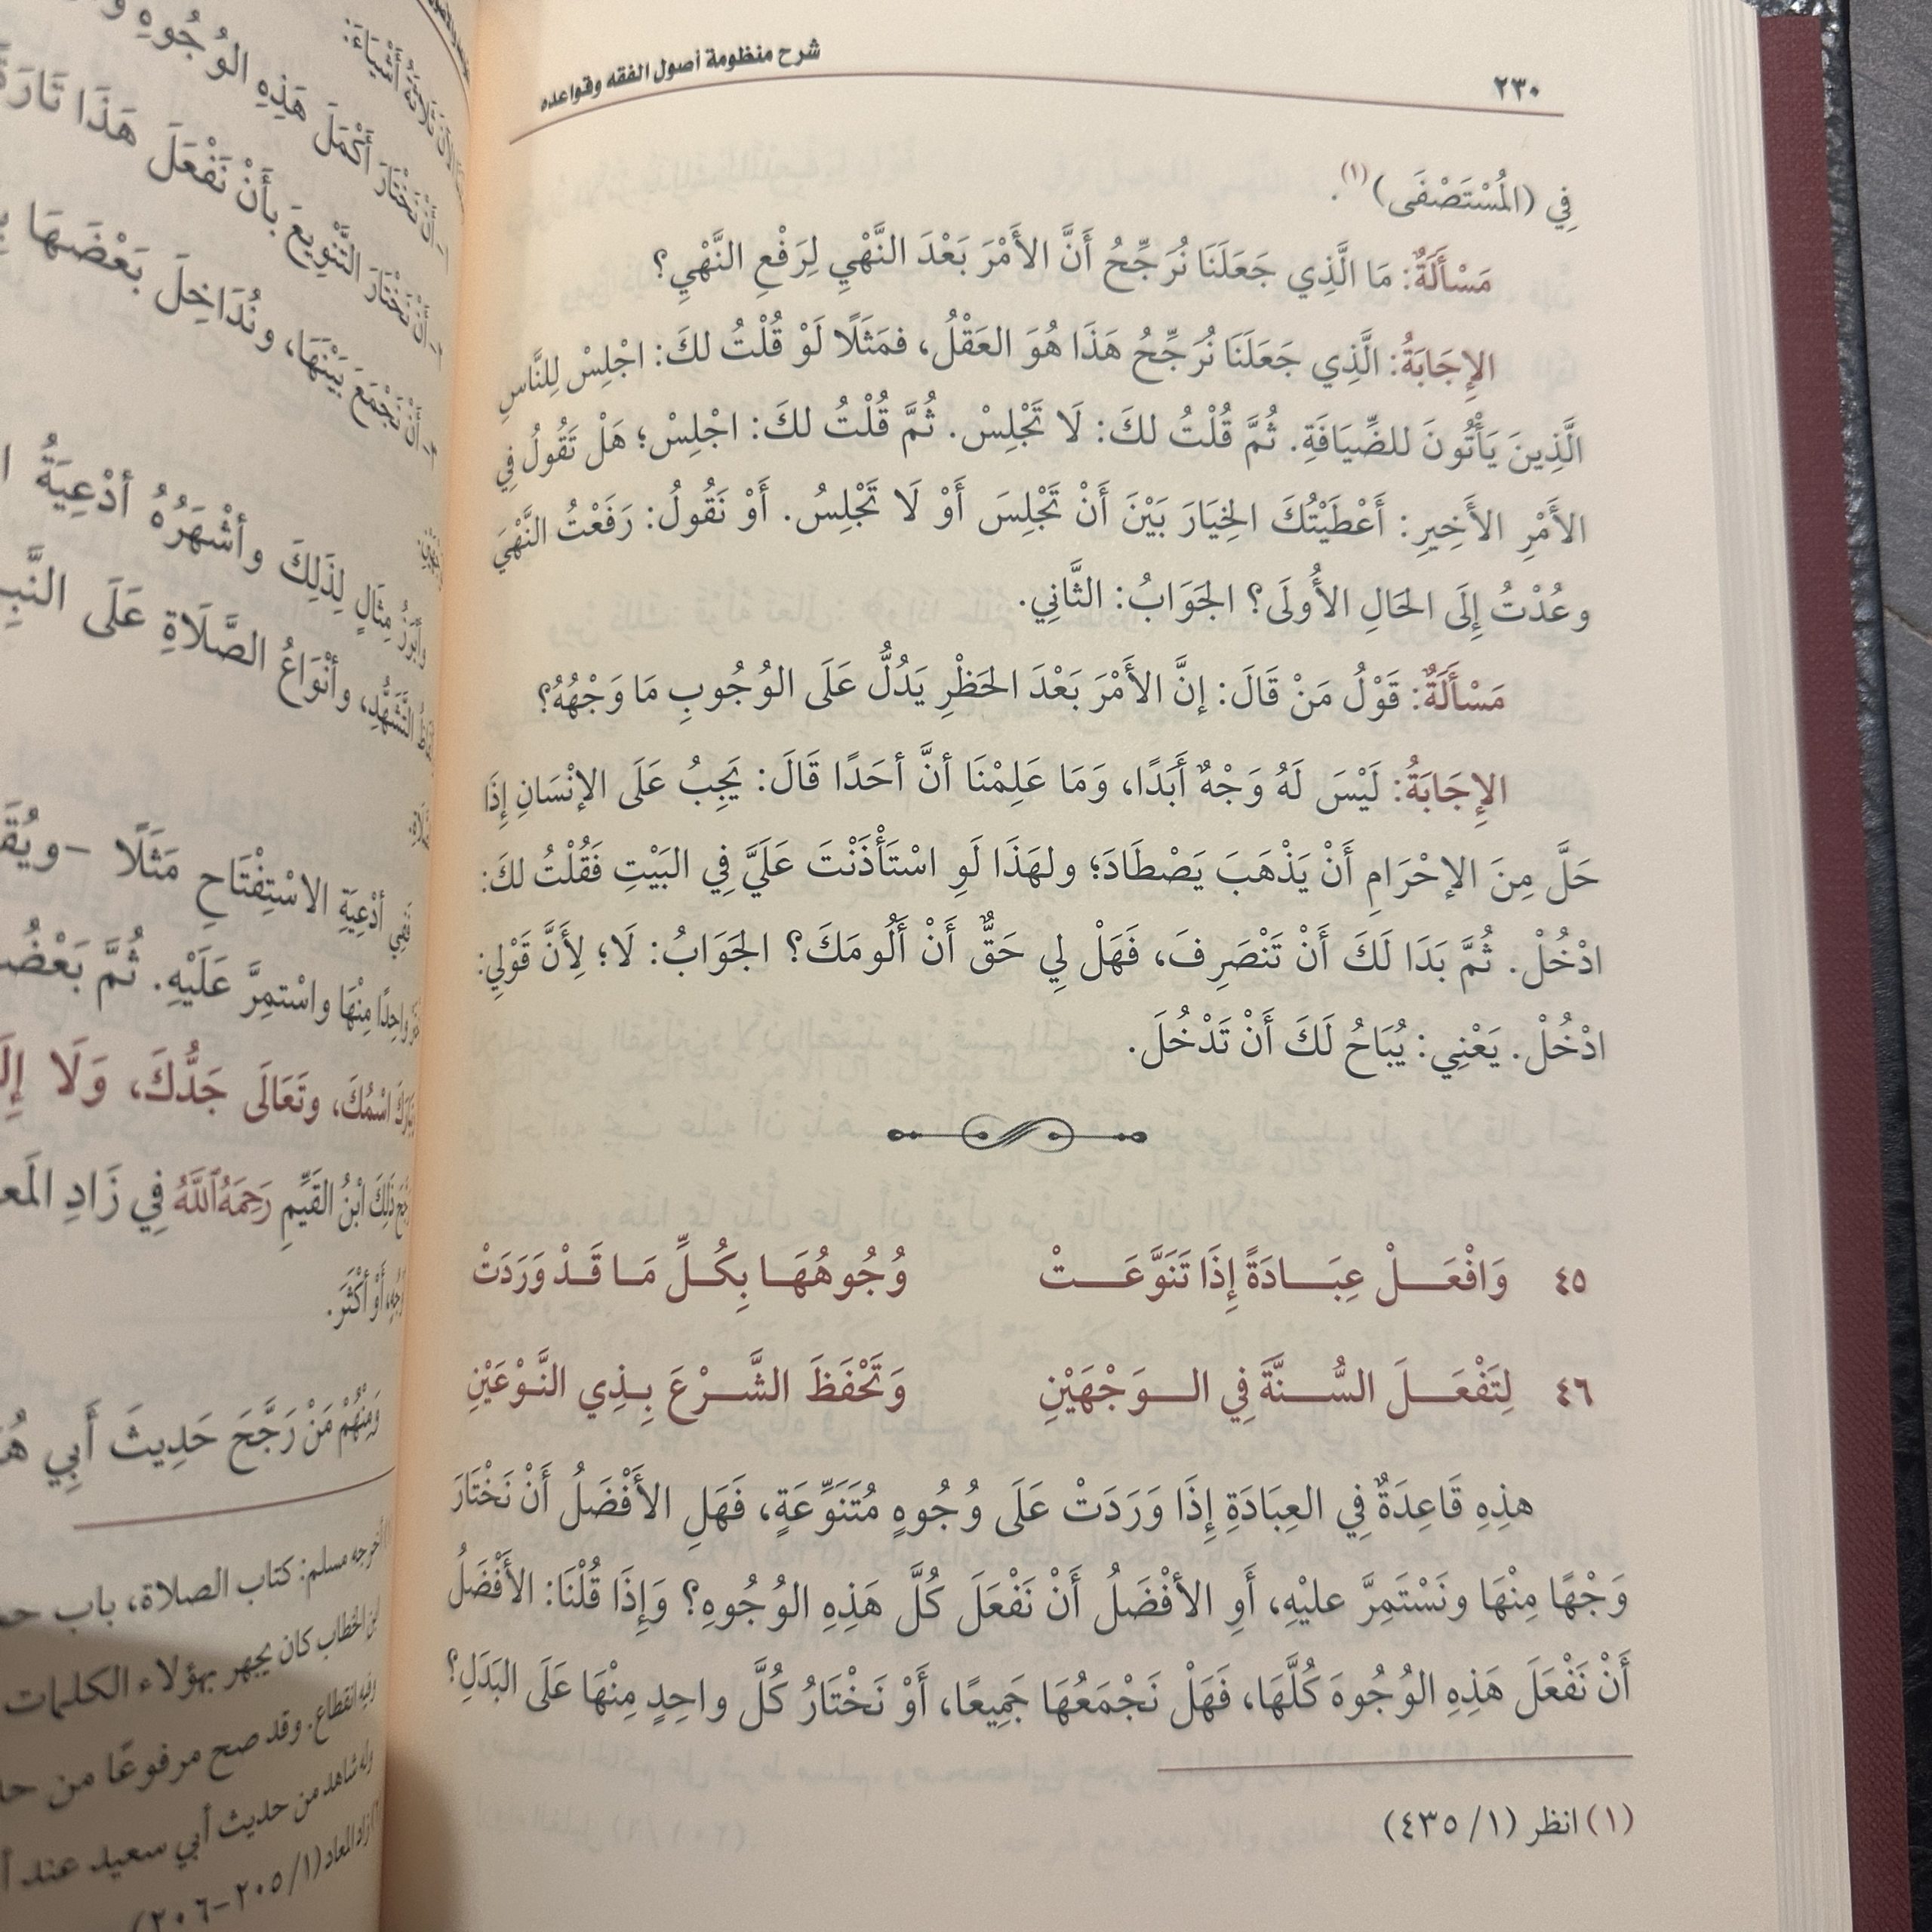 ٢٣٠
شرح منظومة أصول الفقه وقواعده
فِي (المُسْتَصْفَى)(١).
مَسْأَلَةٌ: مَا الَّذِي جَعَلَنَا نُرَجِّحُ أَنَّ الأَمْرَ بَعْدَ النَّهْيِ لِرَفْعِ النَّهْيِ؟
الإِجَابَةُ: الَّذِي جَعَلَنَا نُرَجِّحُ هَذَا هُوَ العَقْلُ، فمَثَلًا لَوْ قُلْتُ لكَ: اجْلِسْ لِلنَّاسِ
الَّذِينَ يَأْتُونَ للضِّيَافَةِ. ثُمَّ قُلْتُ لكَ: لَا تَجْلِسْ. ثُمَّ قُلْتُ لكَ: اجْلِسْ؛ هَلْ تَقُولُ فِي
الأَمْرِ الأَخِيرِ: أَعْطَيْتُكَ الخِيَارَ بَيْنَ أَنْ تَجْلِسَ أَوْ لَا تَجْلِسُ. أَوْ نَقُولُ: رَفَعْتُ النَّهْيَ
وعُدْتُ إِلَى الحَالِ الأُولَى؟ الجَوَابُ: الثَّانِي.
مَسْأَلَةٌ: قَوْلُ مَنْ قَالَ: إنَّ الأَمْرَ بَعْدَ الحَظْرِ يَدُلُّ عَلَى الوُجُوبِ مَا وَجْهُهُ؟
الإِجَابَةُ: لَيْسَ لَهُ وَجْهٌ أَبَدًا، وَمَا عَلِمْنَا أنَّ أحَدًا قَالَ: يَجِبُ عَلَى الإنْسَانِ إِذَا
حَلَّ مِنَ الإحْرَامِ أَنْ يَذْهَبَ يَصْطَادَ؛ ولهَذَا لَوِ اسْتَأْذَنْتَ عَلَيَّ فِي البَيْتِ فَقُلْتُ لكَ:
ادْخُلْ. ثُمَّ بَدَا لَكَ أَنْ تَنْصَرِفَ، فَهَلْ لِي حَقٌّ أَنْ أَلُومَكَ؟ الجَوَابُ: لَا؛ لِأَنَّ قَوْلِي:
ادْخُلْ. يَعْنِي: يُبَاحُ لَكَ أَنْ تَدْخُلَ.
٤٥ وَافْعَلْ عِبَادَةً إِذَا تَنَوَّعَتْ وُجُوهُهَا بِكُلِّ مَا قَدْ وَرَدَتْ
٤٦ لِتَفْعَلَ السُّنَّةَ فِي الوَجْهَيْنِ وَتَحْفَظَ الشَّرْعَ بِذِي النَّوْعَيْنِ
هذِهِ قَاعِدَةٌ فِي العِبَادَةِ إِذَا وَرَدَتْ عَلَى وُجُوهٍ مُتَنَوِّعَةٍ، فَهَلِ الأَفْضَلُ أَنْ نَخْتَارَ
وَجْهًا مِنْهَا ونَسْتَمِرَّ عليْهِ، أَوِ الأفْضَلُ أَنْ نَفْعَلَ كُلَّ هَذِهِ الوُجُوهِ؟ وَإِذَا قُلْنَا: الأَفْضَلُ
أَنْ نَفْعَلَ هَذِهِ الوُجُوهَ كُلَّهَا، فَهَلْ نَجْمَعُهَا جَمِيعًا، أَوْ نَخْتَارُ كُلَّ واحِدٍ مِنْهَا عَلَى البَدَلِ؟
(١) انظر (١/ ٤٣٥)
ثَلَاثَةُ أَشْيَاءَ:
نَخْتَارَ أَكْمَلَ هَذِهِ الوُجُوهِ
أَنْ نَخْتَارَ التَّنْوِيعَ بِأَنْ نَفْعَلَ هَذَا
أَنْ نَجْمَعَ بَيْنَهَا، ونُدَاخِلَ بَعْضَهَا
وأَبْرَزُ مِثَالٍ لِذَلِكَ وأشْهَرُهُ أدْعِيَةُ
التَّشَهُّدِ، وأنْوَاعُ الصَّلَاةِ عَلَى
أدْعِيَةِ الاسْتِفْتَاحِ مَثَلًا
واحِدًا مِنْهَا واسْتمِرَّ عَلَيْهِ. ثُمَّ
اسْمُكَ، وتَعَالَى جَدُّكَ، وَلَا
ذَلِكَ ابْنُ القَيِّمِ رَحِمَهُ ٱللَّهُ فِي زَادِ
أَوْ أكْثَرَ.
وَمِنْهُمْ مَنْ رَجَّحَ حَدِيثَ أَبِي
أخرجه مسلم: كتاب الصلاة، باب
الخطاب كان يجهر بهؤلاء الكلمات
وفيه انقطاع. وقد صح مرفوعًا من
وله شاهد من حديث أبي سعيد عند
زاد المعاد (١/ ٢٠٥-٢٠٦)